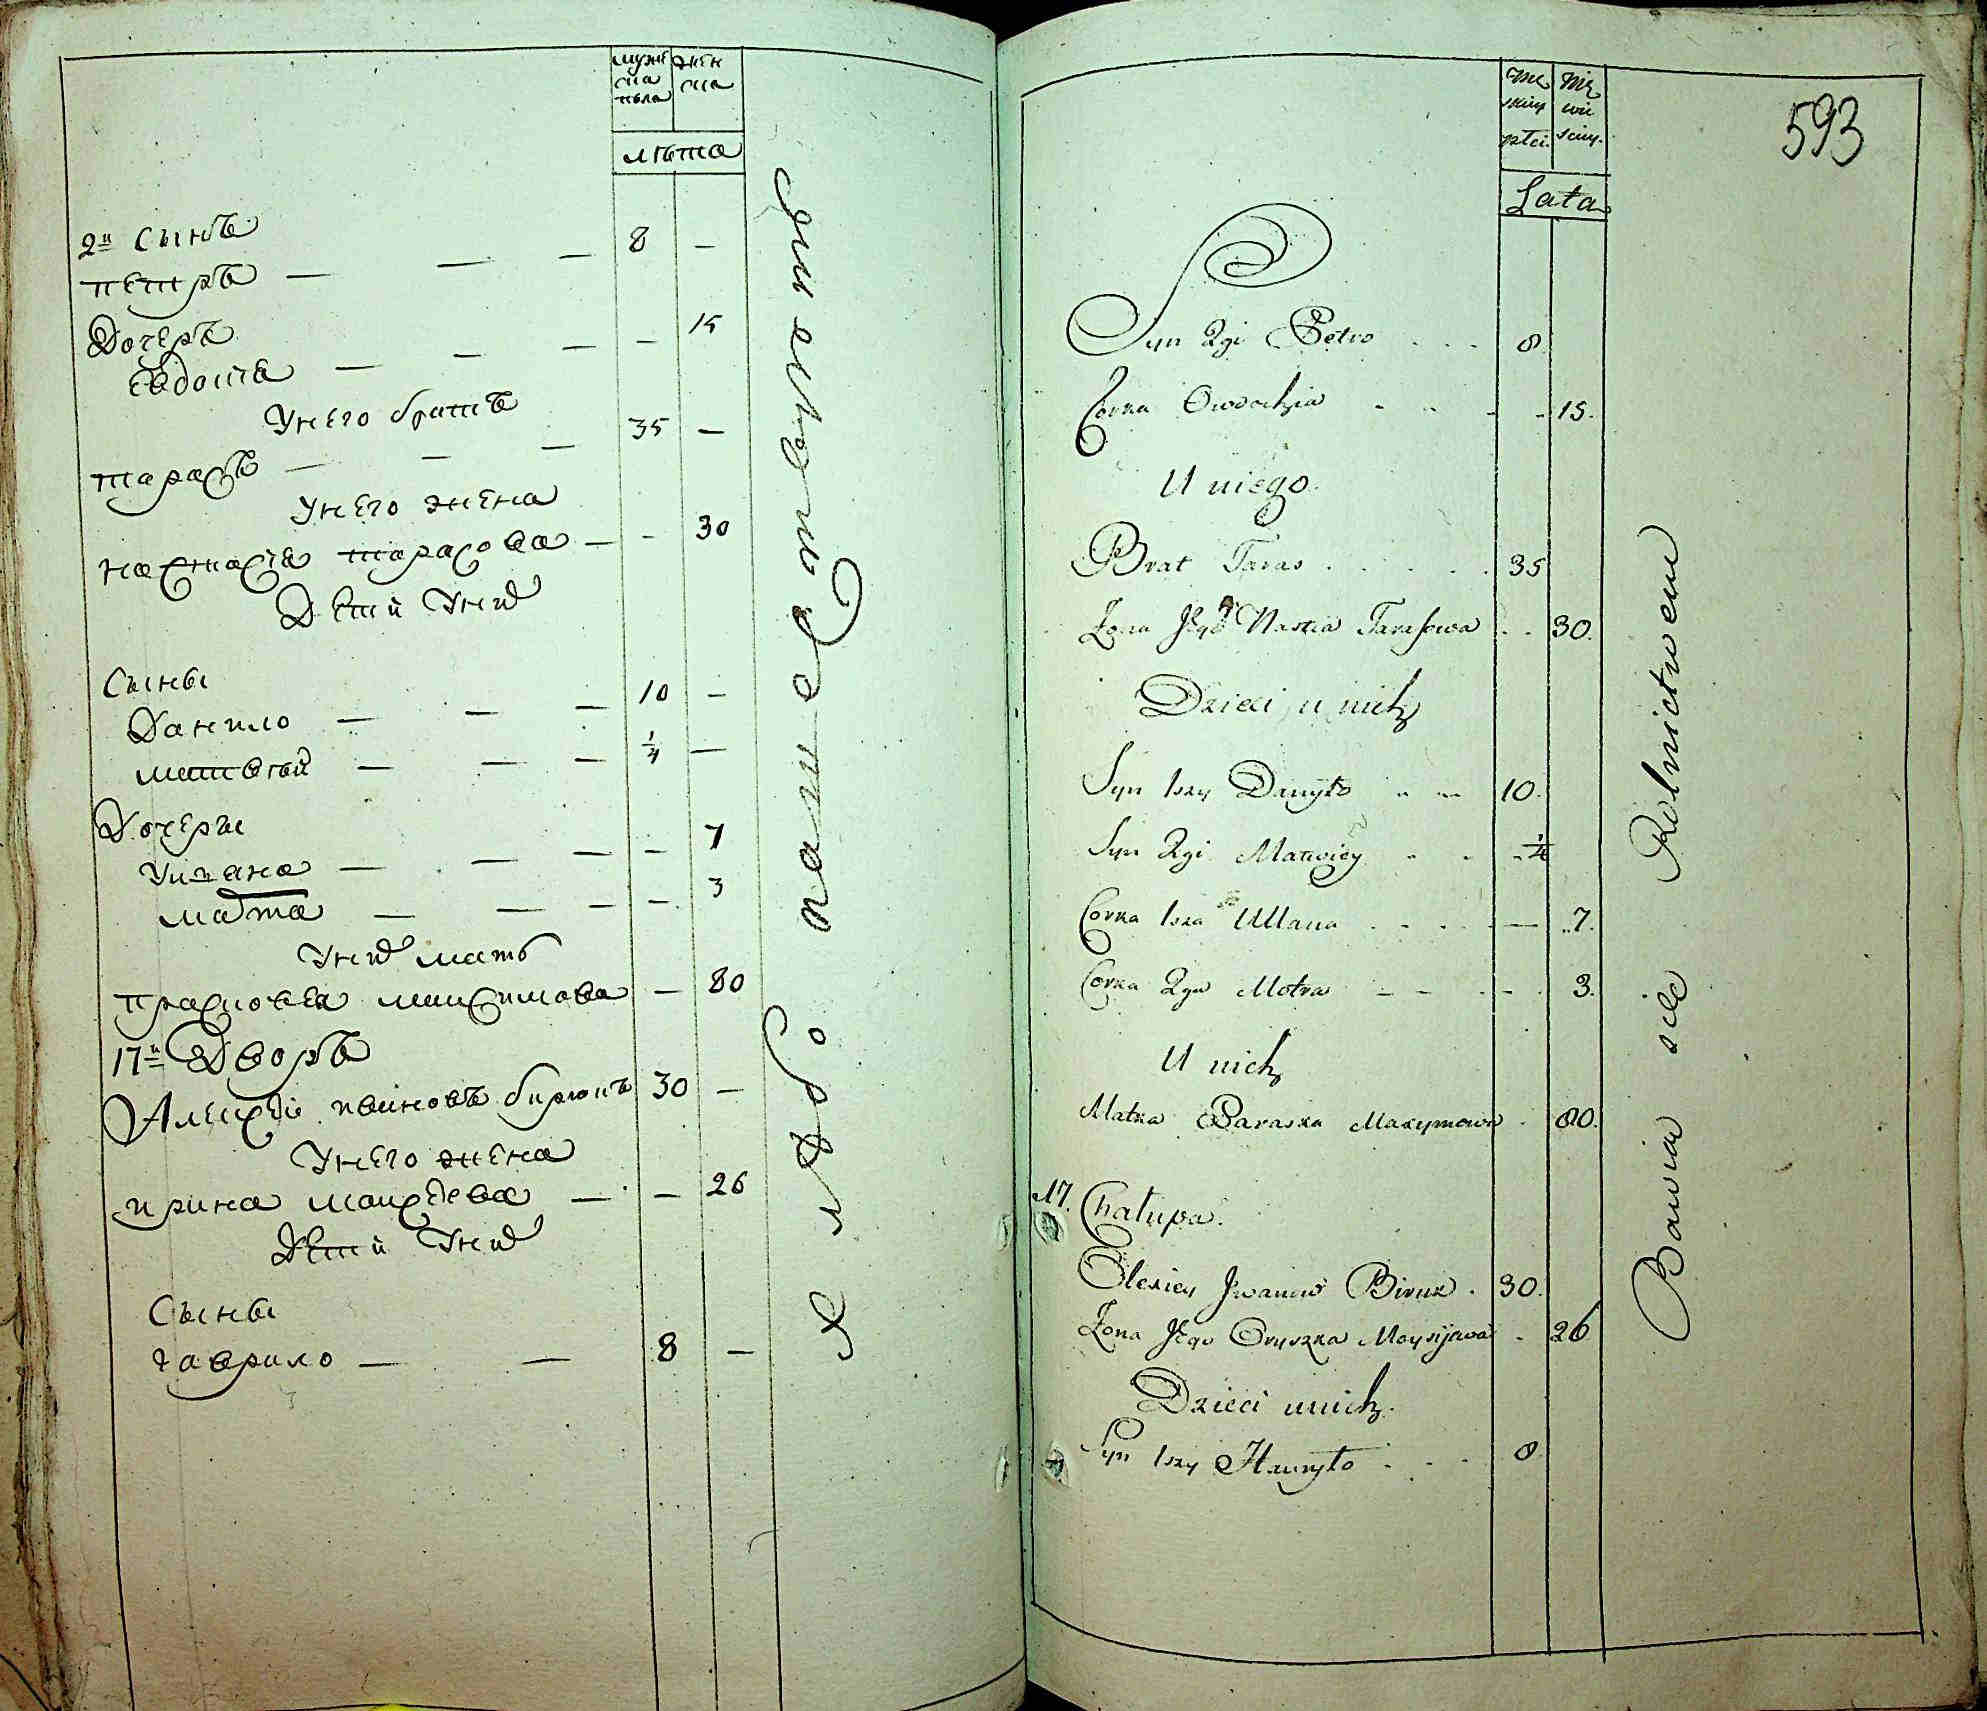 мужеска пола
женска
лѣта
2й Сынъ
петръ — — — 8 —
Дочеръ
Евдокиа — — — — 15
У него братъ
тарасъ — — — 35 —
У него жена
настасия тарасова — — 30
Дѣтй У них
Сыны
Данило — — — 10 —
матвѣй — — — 1/4 —
Дочеры
Улиана — — — — 7
мотра — — — — 3
У них мать
прасковея максимова — 80
17й Дворъ
Алексѣй ивановъ бирюкъ 30 —
У него жена
ирина моисѣева — — 26
Дѣтй У них
Сыны
гаврило — — 8 —
хлѣбопашеством
593
męskiey płci
niewieściey
Lata
Syn 2gi Petro . . . 8
Corka Owdochia - - - - 15.
U niego.
Brat Taras . . . . . 35
Zona Jego Nastia Tarasowa . . 30.
Dzieci u nich
Syn 1szy Danyło - - 10.
Syn 2gi Matwiey - - - 1/4
Corka 1sza Ullana . . . . — 7.
Corka 2ga Motra — — - - 3.
U nich
Matka Paraska Maxymowa . 80.
17. Chałupa.
Olexiey Jwanow Biruk . 30.
Zona Jego Oryszka Moysijowa . 26
Dzieci u nich.
Syn 1szy Hawryło . . . 8
Bawia sie Rolnictwem